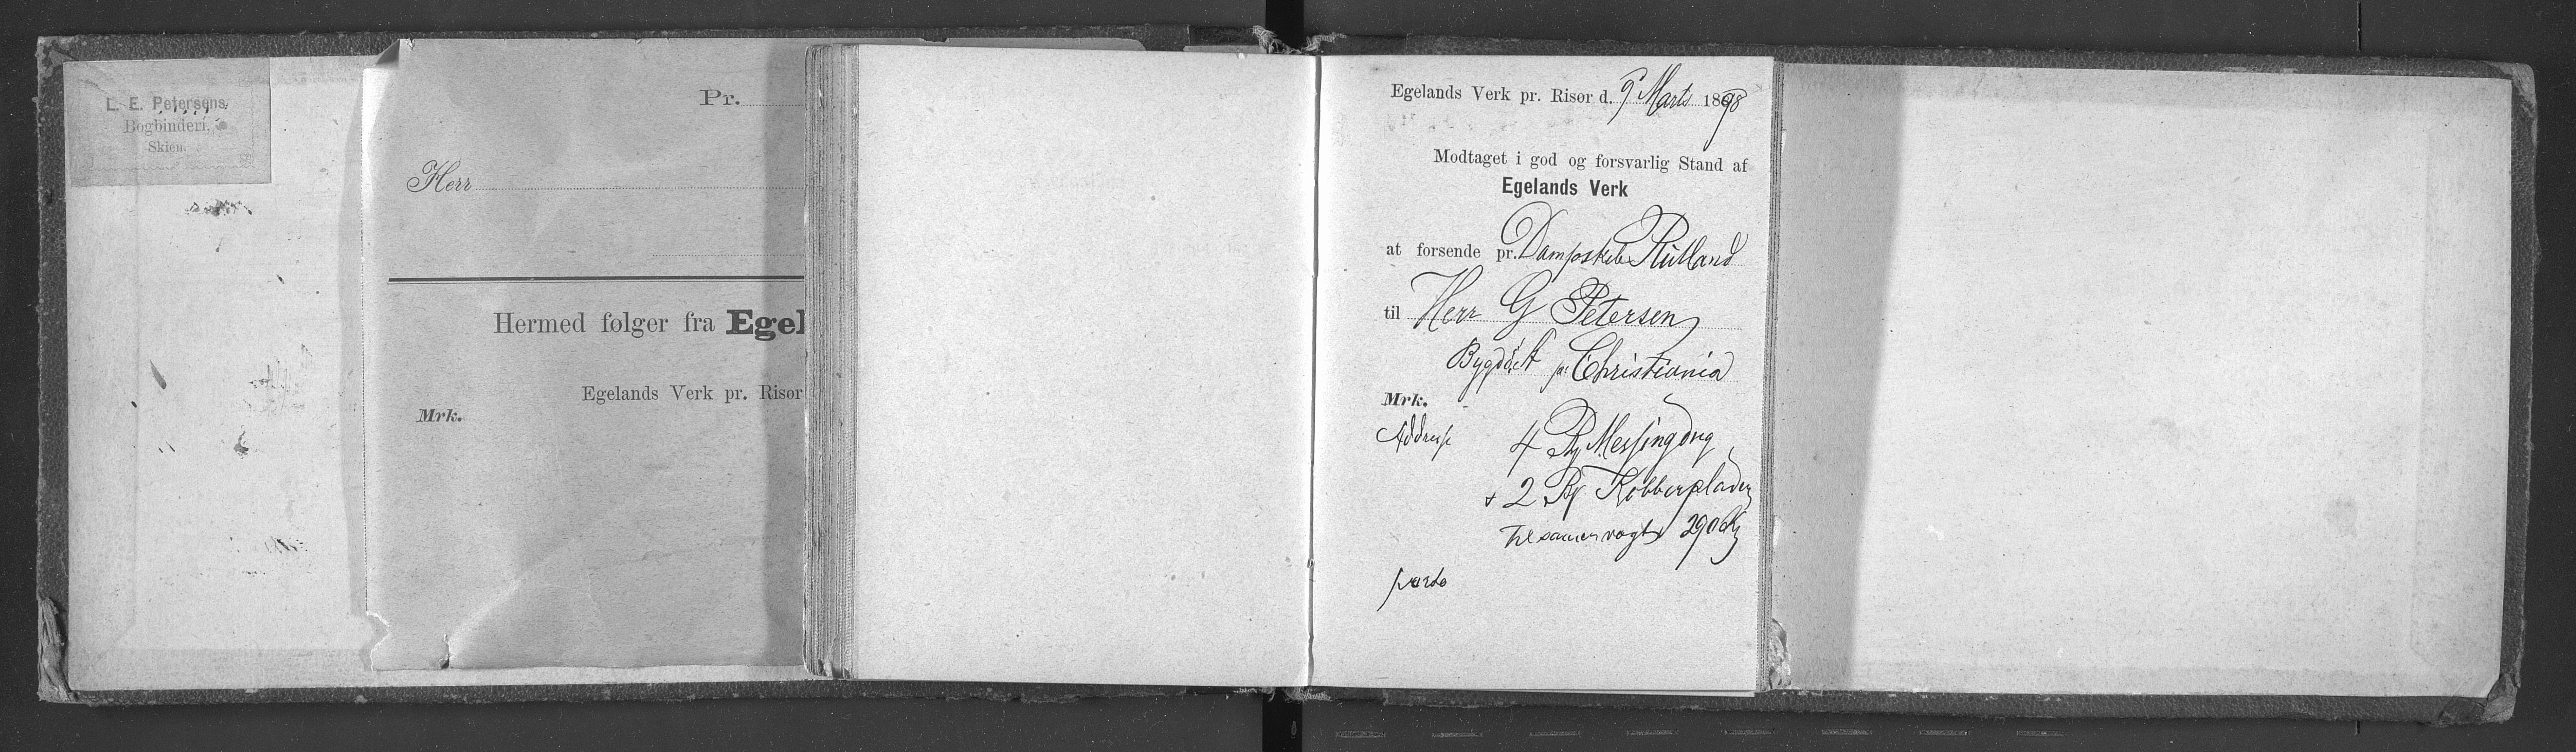 L. E. Petersens
Bogbinderi,
Skien.
Pr.
Herr
Hermed følger fra Egel
Egelands Verk pr. Risør
Mrk.
Egelands Verk pr. Risør d. 9 Marts 1898
Modtaget i god og forsvarlig Stand af
Egelands Verk
at forsende pr. Dampskib Rutland
til Herr G Petersen
pr Christiania
Mrk.
Address
4 Messing
+ 2 Kobberplader
Tilsamen vægt 290 Kg